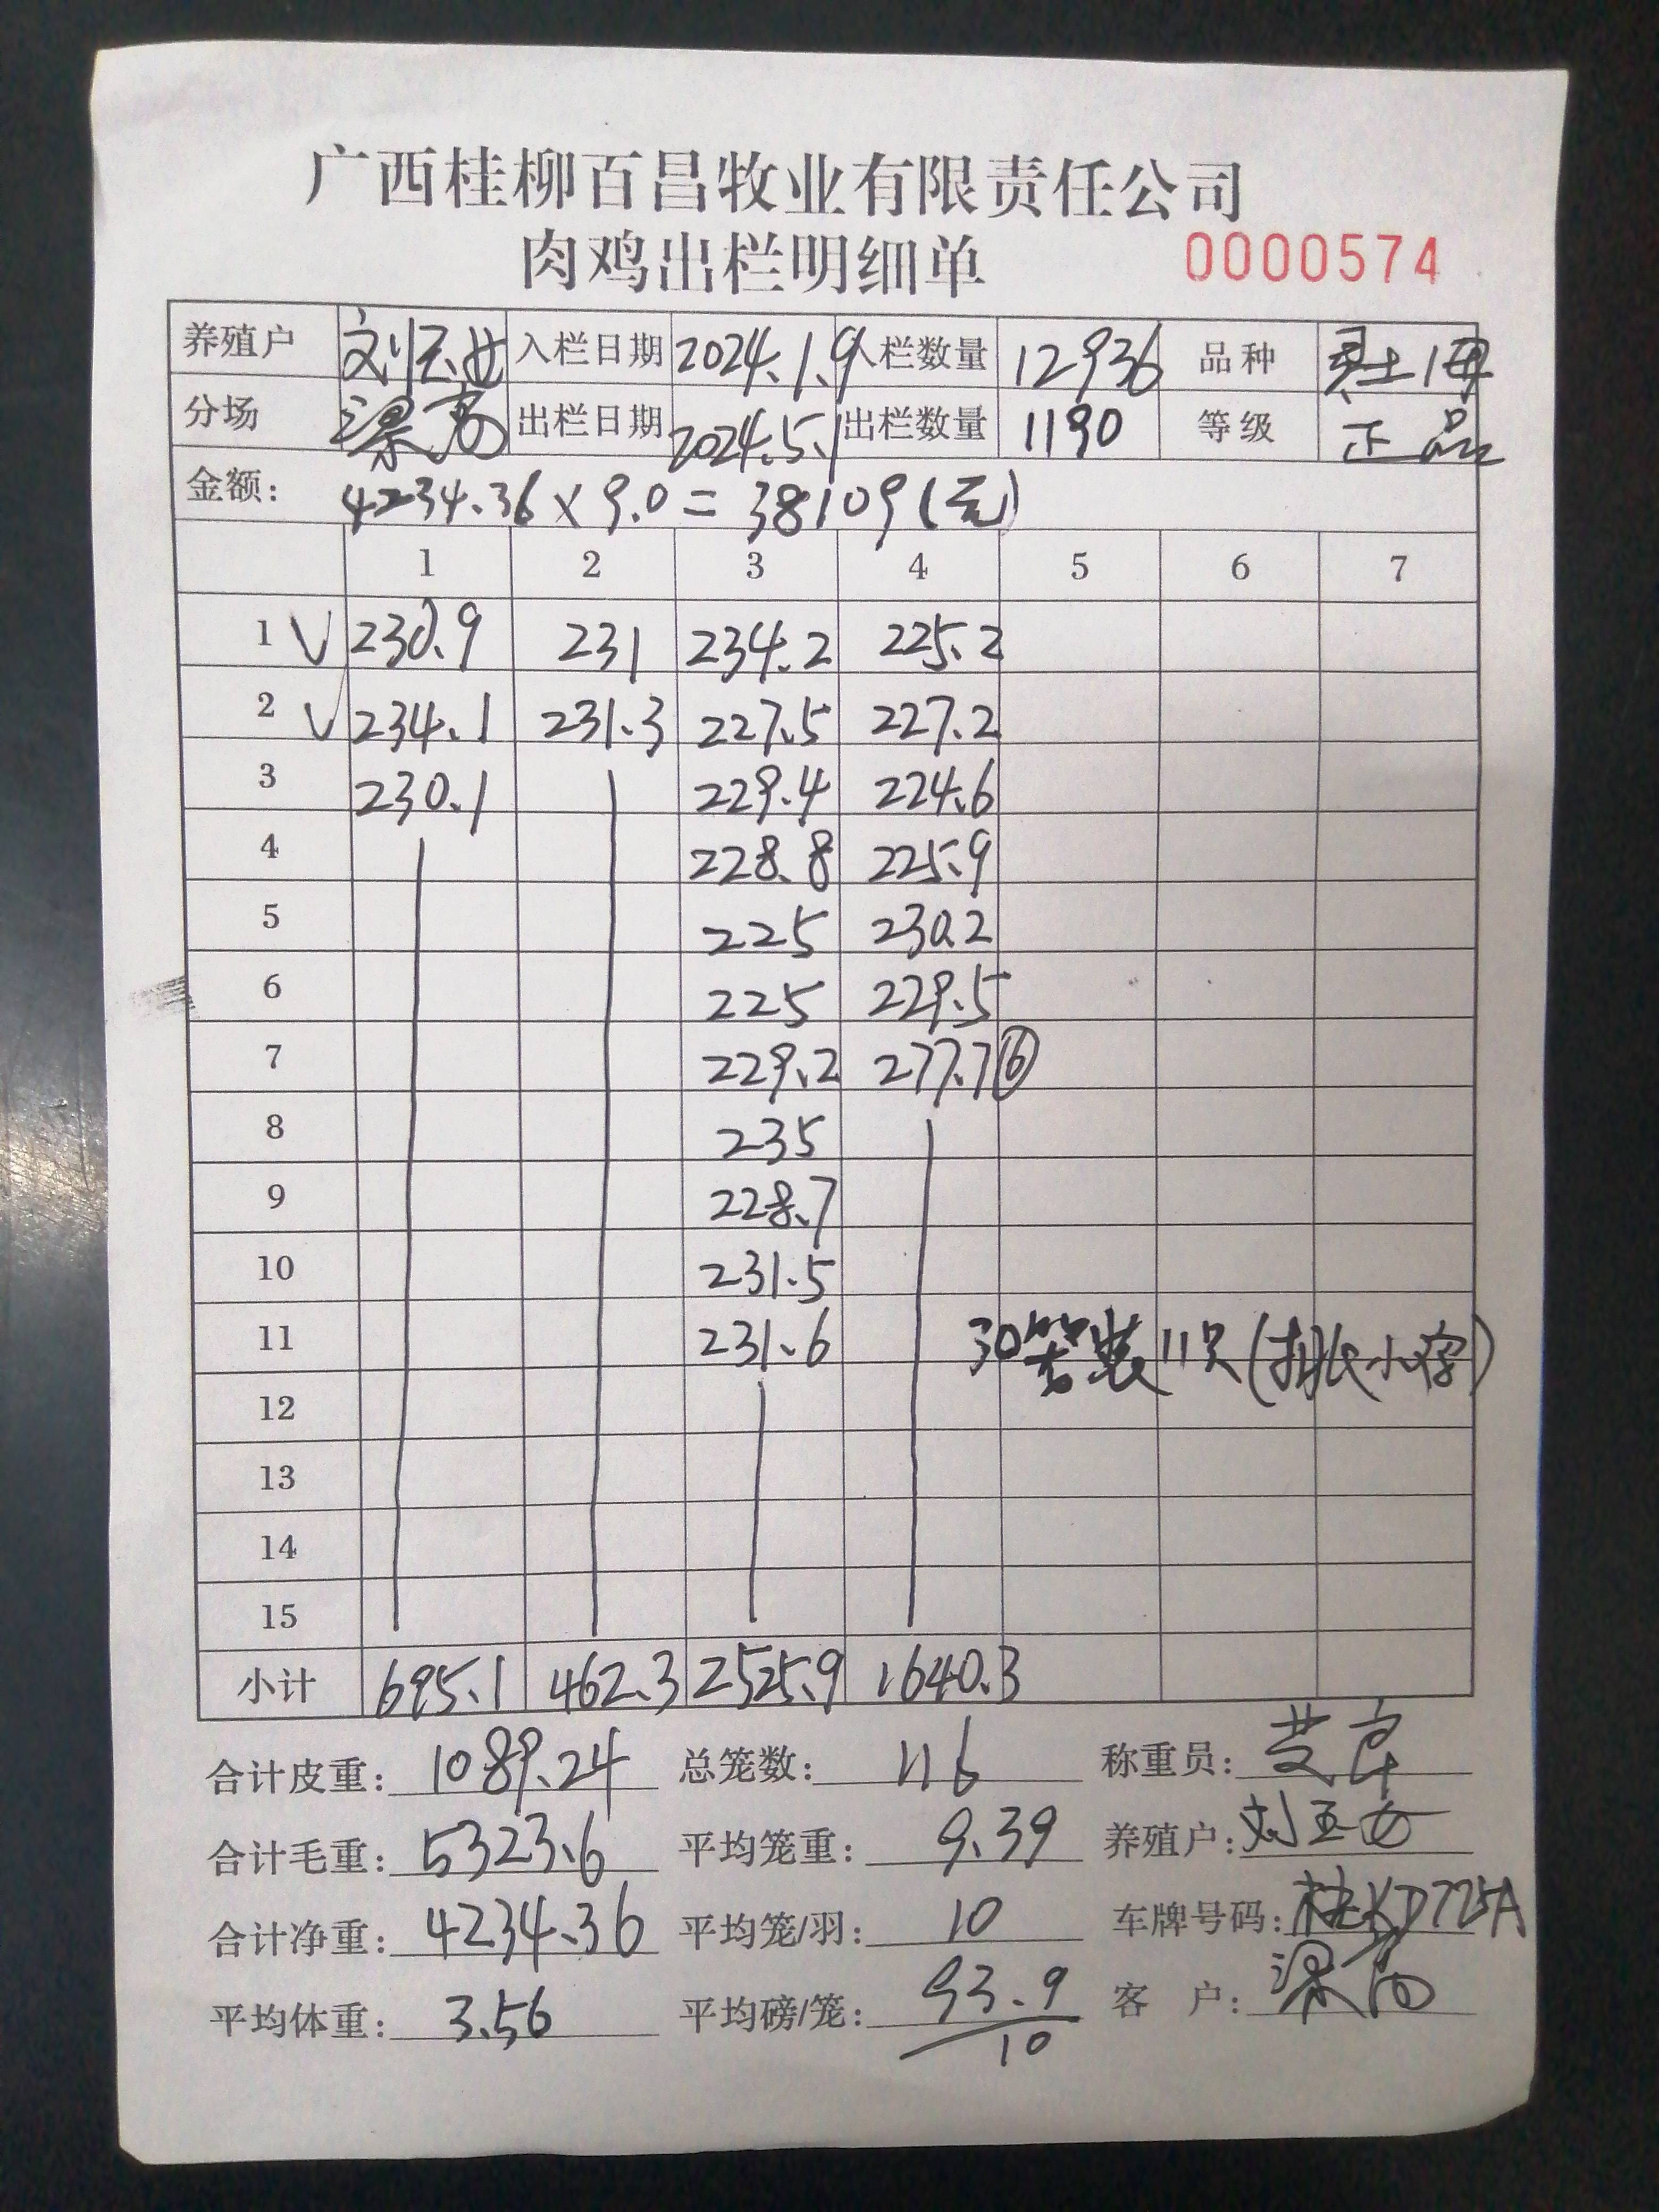 广西桂柳百昌牧业有限责任公司
肉鸡出栏明细单 0000574
养殖户 刘玉女 入栏日期 2024.1.9 入栏数量 12936 品种
分场 梁 出栏日期 2024.5.1 出栏数量 1190 等级 正品
金额: 4234.36×9.0=38109(元)
1 2 3 4 5 6 7
1 √ 230.9 231 234.2 225.2
2 √ 234.1 231.3 227.5 227.2
3 230.1 229.4 224.6
4 228.8 225.9
5 225 230.2
6 225 229.5
7 229.2 277.7 ⑥
8 235
9 228.7
10 231.5
11 231.6 30 装11只
12
13
14
15
小计 695.1 462.3 2525.9 1640.3
合计皮重: 1089.24 总笼数: 116 称重员:
合计毛重: 5323.6 平均笼重: 9.39 养殖户: 刘玉女
合计净重: 4234.36 平均笼/羽: 10 车牌号码: 桂KD725A
平均体重: 3.56 平均磅/笼: 93.9 客 户: 梁
10